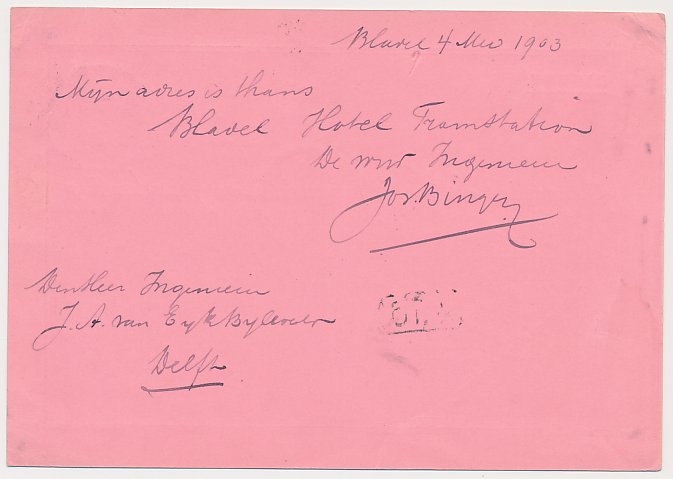 Bladel 4 Mei 1903
Mijn adres is thans
Bladel Hotel Tramstation
De wnd Ingenieur
Jos. Binger
Den Heer Ingenieur
J. A. van Eyk Byleveld
Delft